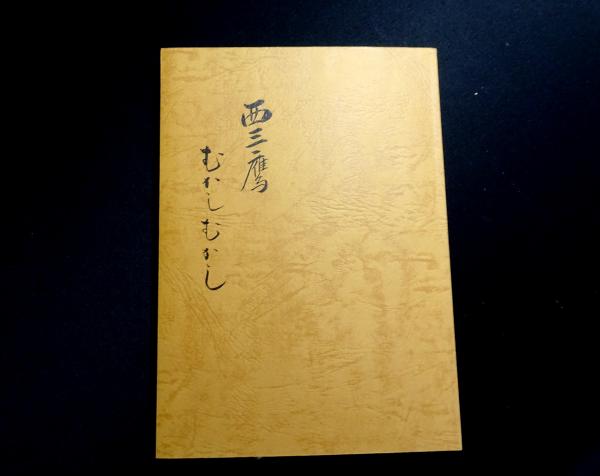 西三鷹
むかしむかし